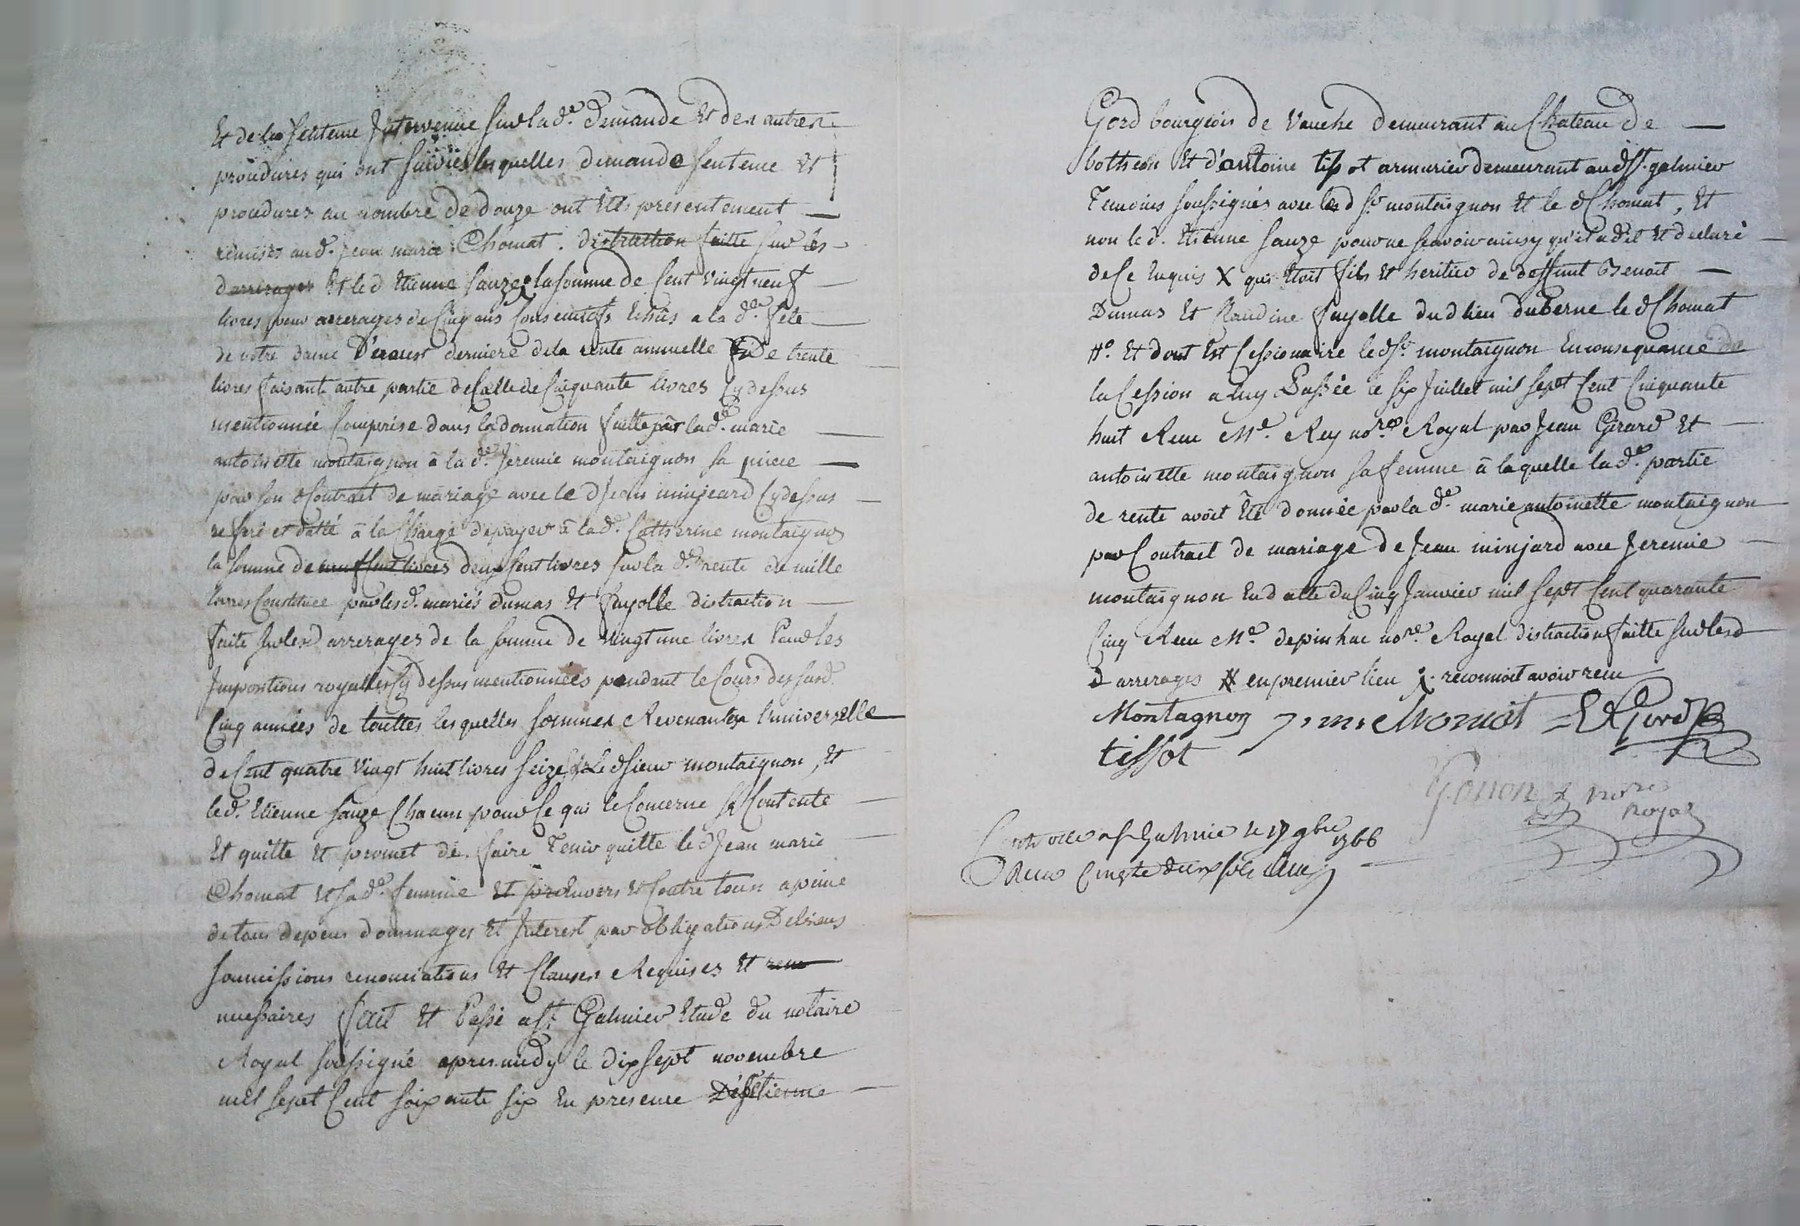 Et de la sentence Intervenüe sur lad.e demande Et des autres
procédures qui ont suivies lesquelles demande sentence Et
procedures au nombre De douze ont Etés presentement
remises aud. jean marie Chomat. distraction faitte sur les
darrerages Et led Etienne sauze la somme de Cent vingt neuf
livres pour arrerages de Cinq ans Consecutifs Echûs a la d.e fête
de notre dame D'eaoust derniere de la rente annuelle de trente
livres faisant autre partie de Celle de Cinquante livres Cy dessus
mentionnée Comprise dans la donnation faitte par lad.e marie
antoinette montaignon à la d.e Jeremie montaignon sa niece
par son Contract de mariage avec le d Jean minjeard Cy dessus
referé et datté à la Charge de payer à la d.e Catherine montaignon
la somme de neuf Cent livres deux Cent livres sur la d.e rente de mille
livres Constituée par lesd. mariés dumas Et fayolle distraction
faite sur lesd arrerages de la somme de vingt une livres Pour les
Impositions royalles Cy dessus mentionnées pendant le Cours des susd.
Cinq années de touttes lesquelles sommes Revenantes a l'universelle
de Cent quatre vingt huit livres seize s. Le d sieur montaignon, Et
led. Etienne sauze Chacun pour Ce qui le Concerne se Contente
Et quitte Et promet de faire Tenir quitte le d Jean marie
Chomat Et sa d.e femme et Envers Et Contre tous a peine
de tous depens dommages Et Interest par obligations De biens
soumissions renonciations Et Clauses Requises Et
necessaires fait Et Passé a St Galmier Etude du notaire
Royal soussigné apres midy le dix sept novembre
mil sept Cent soixante six En presence D'Estienne
Gord bourgeois de Vauche demeurant au Chateau de
bothéon Et d'antoine tissot armurier demeurant aud St. galmier
Temoins soussignés avec led sr montaignon Et le d Chomat, Et
non le d. Etienne sauze pour ne scavoir ainsy qu'il a dit Et declaré
de Ce Enquis X qui Etoit fils Et heritier de deffunt Benoit
Dumas Et Claudine fayolle du d lieu du berne le d Chomat
#. Et dont Est Cessionaire le d sr. montaignon En consequance de
la Cession a luy Passée le six Juillet mil sept Cent Cinquante
huit Recue Me. Rey nore. Royal par Jean Girard Et
antoinette montaignon sa femme à laquelle la d.e partie
de rente avoit Eté donnée par la d.e marie antoinette montaignon
par Contract de mariage de Jean minjard avec Jeremie
montaignon En datte du Cinq Janvier mil sept Cent quarante
Cinq Recu Me. depinhac nore. Royal distraction faitte sur lesd
arrerages X en premier lieu X. reconnoit avoir recu
Montagnon J m Chomat E Gord
tissot
Gonon nore
royal
Controllé a st Galmier le 17 9bre 1766
Recu Cinqte deux sols